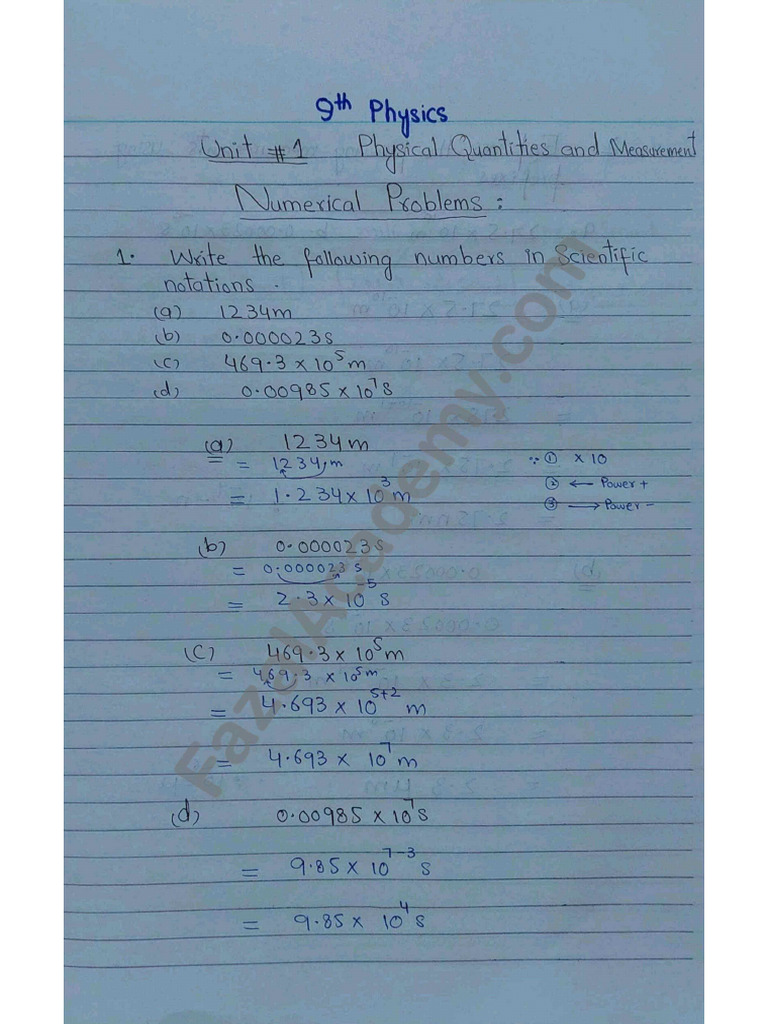 9th Physics
Unit #1 Physical Quantities and Measurement
Numerical Problems:
1. Write the following numbers in Scientific
notations.
(a) 1234m
(b) 0.000023s
(c) 469.3 × 10⁵ m
(d) 0.00985 × 10⁷ s
(a) 1234m
= 1234.m ∵ ① × 10
② ← Power +
= 1.234 × 10³ m
③ → Power -
(b) 0.000023s
= 0.000023 s
= 2.3 × 10⁻⁵ s
(c) 469.3 × 10⁵ m
= 469.3 × 10⁵ m
= 4.693 × 10⁵⁺² m
= 4.693 × 10⁷ m
(d) 0.00985 × 10⁷ s
= 9.85 × 10⁷⁻³ s
= 9.85 × 10⁴ s
FazalAcademy.com